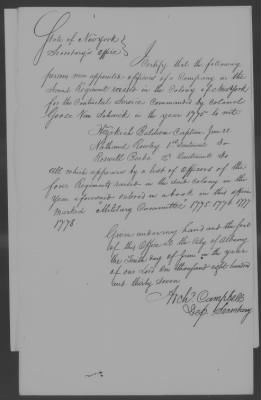 State of New York }
Secretary's office }
Certify that the following
persons were appointed officers of a Company in the
Second Regiment raised in the Colony of New York
for the Continental Service Commanded by Colonel
Goose Van Schaick in the year 1775 to wit
Hezekiah Baldwin Captain June 28
Nathaniel Rowley 1st Lieutenant do
Roswell Beebe 2d Lieutenant do
All which appears by a list of officers of the
four Regiments raised in the said colony in the
year aforesaid entered in a book in this office
marked "Military Committee" 1775 1776 1777
1778.
Given under my hand and the seal
of this Office at the City of Albany
the Tenth day of June in the year
of our Lord One thousand eight hundred
and thirty seven
Arch. Campbell
Dep. Secretary